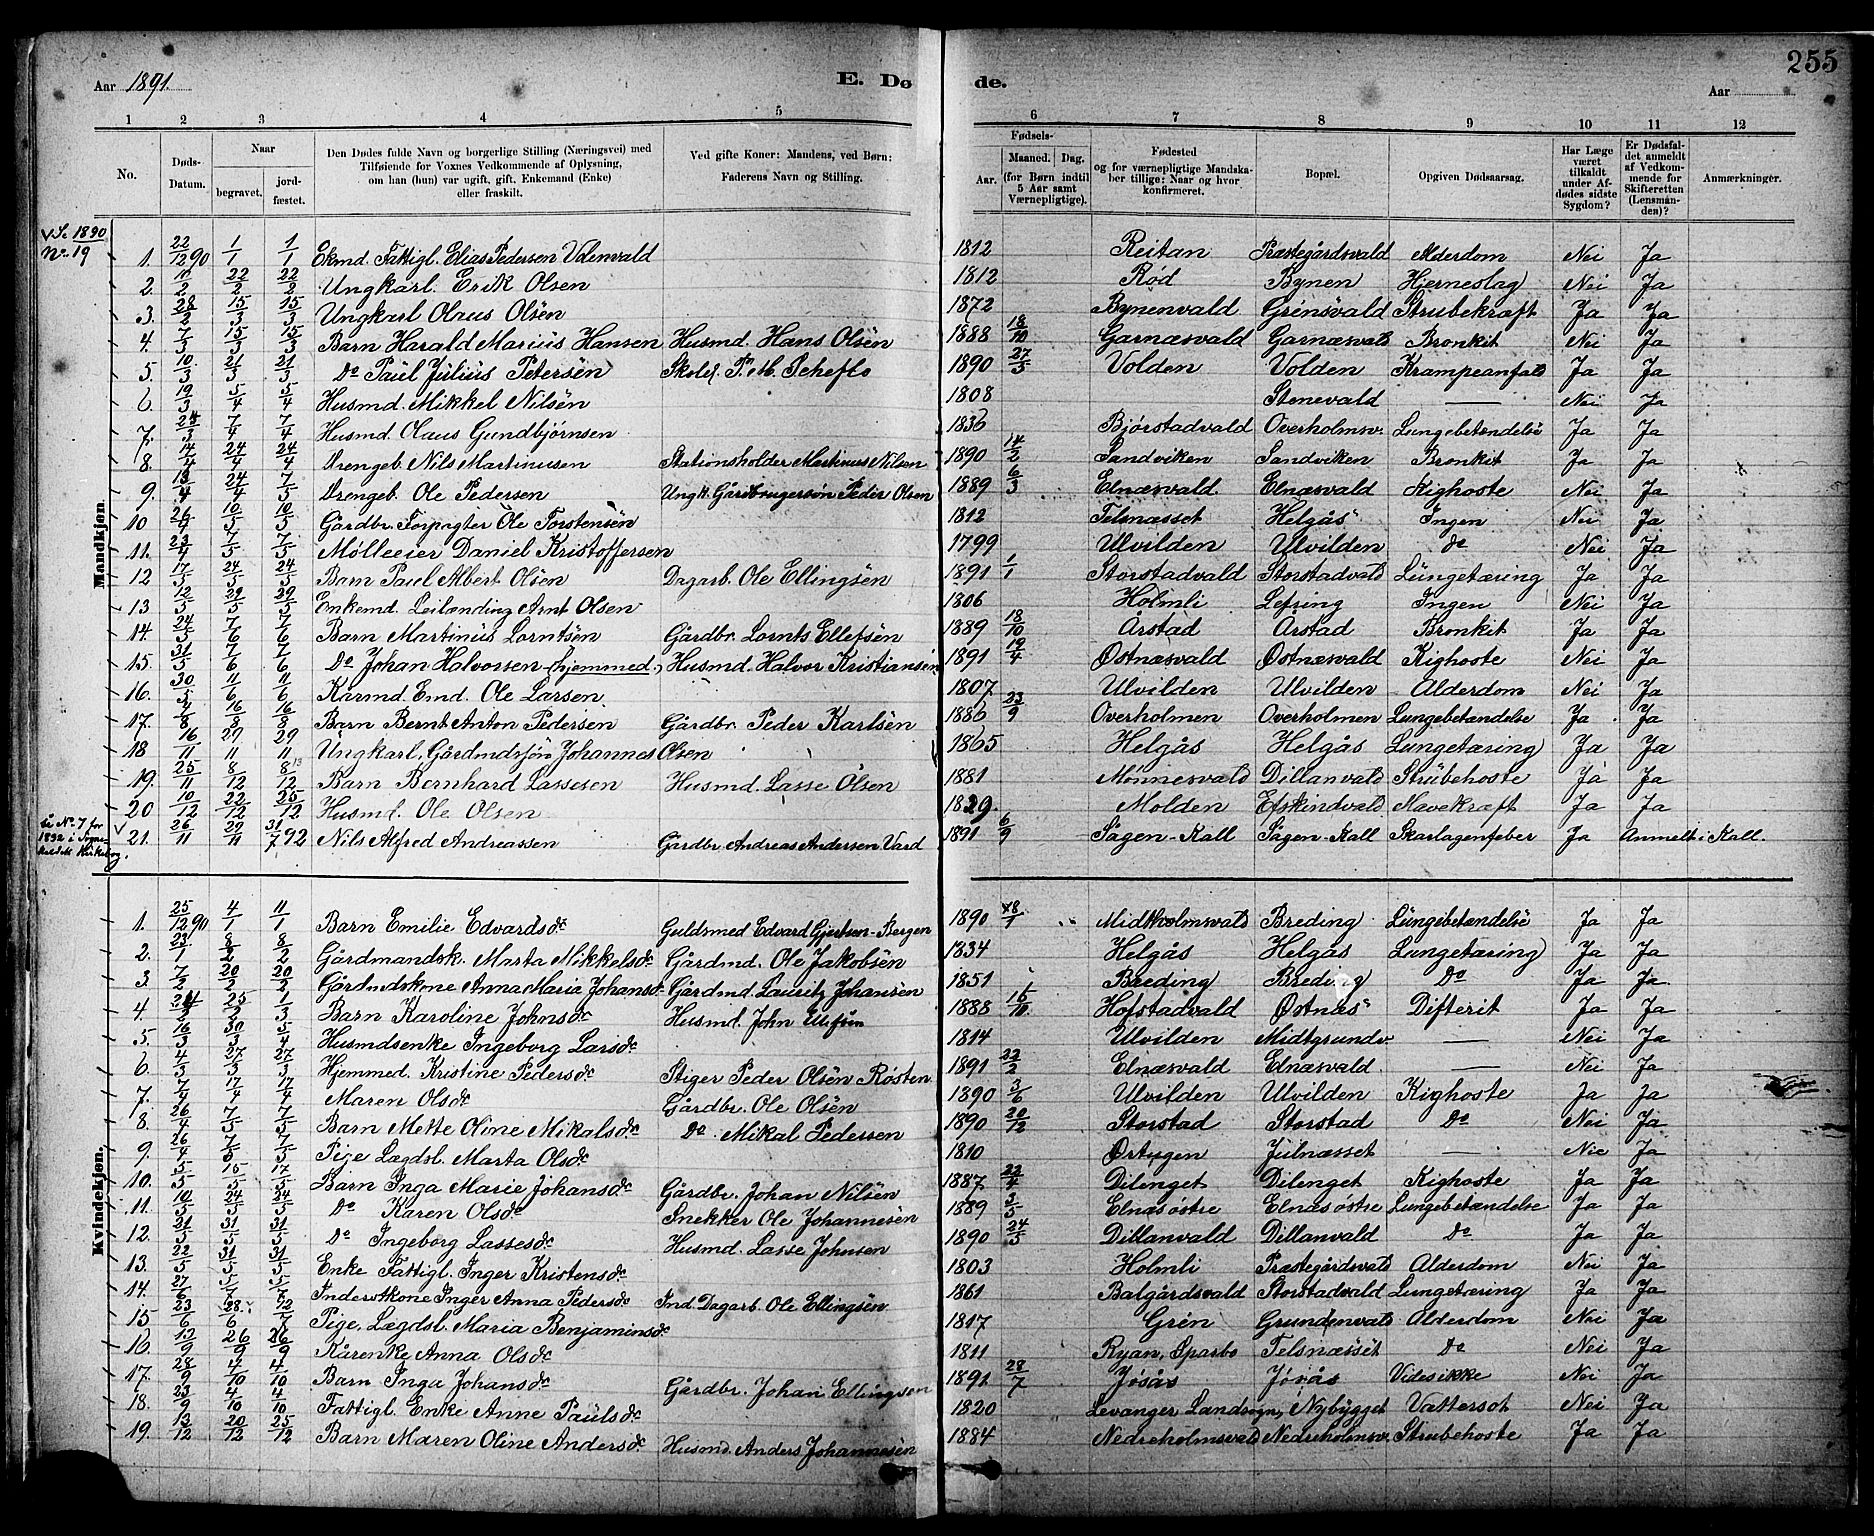 255
Aar 1891. E. Dø de. Aar
1 2 3 4 5 6 7 8 9 10 11 12
No. Døds-Datum. Naar begravet. jordfæstet. Den Dødes fulde Navn og borgerlige Stilling (Næringsvei) med Tilføiende for Voxnes Vedkommende af Oplysning, om han (hun) var ugift, gift, Enkemand (Enke) eller fraskilt. Ved gifte Koner: Mandens, ved Børn: Faderens Navn og Stilling. Fødsels- Aar. Maaned. Dag. (for Børn indtil 5 Aar samt Værnepligtige). Fødested og for værnepligtige Mandskaber tillige: Naar og hvor konfirmeret. Bopæl. Opgiven Dødsaarsag. Har Læge været tilkaldt under Afdødes sidste Sygdom? Er Dødsfaldet anmeldt af Vedkommende for Skifteretten (Lensmanden)? Anmærkninger.
Mandkjøn
V. Se 1890 No. 19
1. 22/12 90 1/1 1/1 Ekmd. Fattigl. Elias Pedersen Volenvald 1812 Reitan Præstegårdsvald Alderdom Nei Ja
2. 10/2 22/2 22/2 Ungkarl. Erik Olsen 1812 Rød Bynen Hjerneslag Nei Ja
3. 28/2 15/3 15/3 Ungkarl Olaus Olsen 1872 Bynenvald Grensvald Strubekræft Ja Ja
4. 7/3 15/3 15/3 Barn Harald Marius Hansen Husmd. Hans Olsen 1888 18/10 Garnæsvald Garnæsvald Bronkit Nei Ja
5. 10/3 21/3 21/3 Do Paul Julius Petersen Skolel. P. M. 1890 27/3 Volden Volden Krampeanfald Ja Ja
6. 19/3 5/4 5/4 Husmd. Mikkel Nilsen 1808 Stenevald — Nei Ja
7. 24/3 7/4 7/4 Husmd. Olaus Gundbjørnsen 1836 Bjørstadvald Overholmsv. Lungebetændelse Ja Ja
8. 14/4 24/4 24/4 Drengeb. Nils Martinusen Stationsholder Martinus Nilsen 1890 14/2 Sandviken Sandviken Bronkit Ja Ja
9. 13/4 24/4 7/5 Drengeb. Ole Pedersen Ungk. Gårdbrugersøn Peder Olsen 1889 6/3 Elnæsvald. Elnæsvald Kighoste Nei Ja
10 26/4 10/5 10/5 Gårdbr. Forpagter Ole Torstensen 1812 Telsnæsset Helgås Ingen Nei Ja
11. 23/4 7/5 7/5 Mølleeier Daniel Kristoffersen 1799 Ulvilden Ulvilden do Nei Ja
12 17/5 24/5 24/5 Barn Paul Albert Olsen Dagarb. Ole Ellingsen 1891 1/1 Storstadvald Storstadvald Lungetæring Ja Ja
13 12/5 29/5 29/5 Enkemd. Leilænding Arnt Olsen 1806 Holmli Lefring Ingen Nei Ja
14. 24/5 7/6 7/6 Barn Martinus Lorntsen Gårdbr. Lornts Ellefsen 1889 18/10 Årstad Årstad Bronkit Ja Ja
15. 31/5 7/6 7/6 Do Johan Halvorsen (hjemmed.) Husmd. Halvor Kristiansen 1891 19/4 Østnæsvald Østnæsvald Kighoste Nei Ja
16. 30/5 11/6 11/6 Kårmd. Emd. Ole Larsen 1807 Ulvilden Ulvilden Alderdom Nei Ja
17. 2/8 16/8 16/8 Barn Bernt Anton Pedersen Gårdbr. Peder Karlsen 1886 23/9 Overholmen Overholmen Lungebetændelse Ja Ja
18 16/11 29/11 29/11 Ungkarl, Gårdmdssøn Johannes Olsen 1865 Helgås Helgås Lungetæring Ja Ja
19. 25/11 8/12 8/12 Barn Bernhard Lassesen Husmd. Lasse Olsen 1881 Monnesvald Dillanvald Strubehoste Ja Ja
20 10/12 22/12 25/12 Husmd. Ole Olsen 1829. Molden Efskindvald Mavekræft Ja Ja
Se No. 7 for 1892 i Sognekaldets Kirkebog.
21. 26/11 29/11 31/7 92 Nils Alfred Andreassen Gårdbr. Andreas Andersen Vard 1891 6/9 Sågen-Kall Sågen-Kall Skarlagenfeber Ja Anmeldt i Kall.
Kvindekjøn.
1. 25/12 90 4/1 11/1 Barn Emilie Edvardsdr Guldsmed Edvard Gjertsen-Bergen 1890 /1 Midtholmsvald Breding Lungebetændelse Ja Ja
2. 23/1 8/2 8/2 Gårdmandsk. Marta Mikkelsdr Gårdmd. Ole Jakobsen 1834 Helgås Helgås Lungetæring Ja Ja
3. 7/2 20/2 20/2 Gårdmdskone Anna Maria Johansdr Gårdmd. Lauritz Johansen 1851 Breding Breding Do Ja Ja
4. 24/2 25/2 1/3 Barn Karoline Johnsdr Husmd. John Ellefsen 1888 16/10 Hofstadvald Østnæs Difterit Ja Ja
5. 16/3 30/3 5/4 Husmdsenke Ingeborg Larsdr 1814 Ulvilden Midtgrundv. — Nei Ja
6. 4/3 27/3 27/3 Hjemmed. Kristine Pedersdr Stiger Peder Olsen Rosten 1891 22/2 Elnæsvald Elnæsvald — Nei Ja
7. 7/4 17/4 17/4 Maren Olsdr Gårdbr. Ole Olsen 1890 3/6 Ulvilden Ulvilden Kighoste Ja Ja
8. 26/4 7/5 7/5 Barn Mette Oline Mikalsdr Do. Mikal Pedersen 1890 20/12 Storstad Storstad Do Nei Ja
9. 26/4 7/5 7/5 Pige Lægdsl. Marta Olsdr 1810 Østugen Julnæsset — Nei Ja
10. 5/5 15/5 17/5 Barn Inga Marie Johansdr Gårdbr. Johan Nilsen 1887 22/4 Dilenget Dilenget Kighoste Ja Ja
11. 10/5 24/5 24/5 Do Karen Olsdr Snekker Ole Johannesen 1889 3/5 Elnæsøstre Elnæsøstre Lungebetændelse Ja Ja
12. 21/5 31/5 31/5 Do Ingeborg Lassesdr Husmd. Lasse Johnsen 1890 24/5 Dillanvald Dillanvald Do Ja Ja
13. 22/5 31/5 31/5 Enke Fattigl. Inger Kristensdr 1803 Holmli Præstegårdsvald Alderdom Nei Ja
14. 27/6 5/7 5/8 Inderstkone Inger Anna Pedersdr Ind. Dagarb. Ole Ellingsen 1861 Balgårdsvald Storstadvald Lungetæring Ja Ja
15 23/6 28/6 Pige, Lægdsl. Maria Benjaminsdr 1817 Gren Grundenvald Alderdom Nei Ja
16 13/9 26/9 26/9 Kårenke Anna Olsdr 1811 Ryan, Sparbo Telsnæsset Do Nei Ja
17. 28/9 4/10 4/10 Barn Inga Johansdr Gårdbr. Johan Ellingsen 1891 28/7 Jøsås Jøsås Videsikke Nei Ja
18. 23/9 4/10 4/10 Fattigl. Enke Anne Paulsdr 1820 Levanger Landsogn, Nybygget Vattersot Nei Ja
19. 13/12 20/12 25/12 Barn Maren Oline Andersdr Husmd. Anders Johannesen 1884 Nedreholmsvald Nedreholmsv. Strubehoste Ja Ja